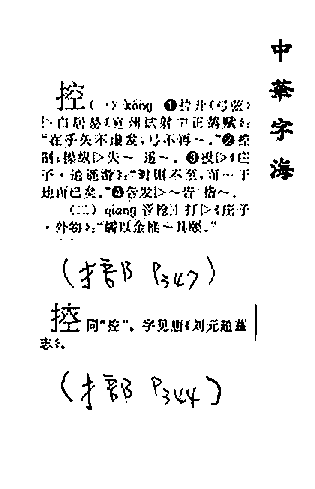 中華字海
控 (一) kòng ❶拉开(弓弦)
▷白居易《宣州试射中正鹄赋》:
“在乎矢不虚发,弓不再~。”❷控
制;操纵▷失~ 遥~。❸投▷《庄
子·逍遥游》:“时则不至,而~于
地而已矣。”❹告发▷~告 指~。
(二) qiāng 打▷《庄子
·外物》:“儒以金椎~其颐。”
(扌部 P347)
控 同“控”。字见唐《刘元超墓
志》。
(扌部 P344)